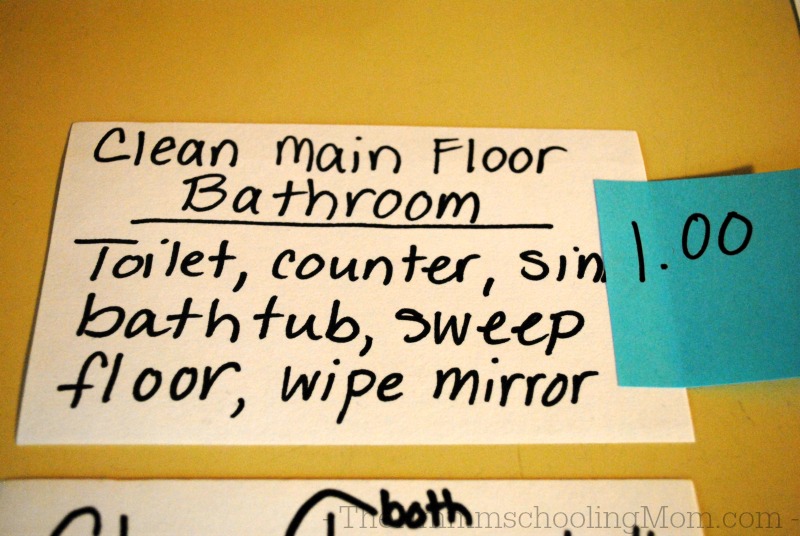 Clean Main Floor
Bathroom
Toilet, counter, sin
1.00
bathtub, sweep
floor, wipe mirror
both